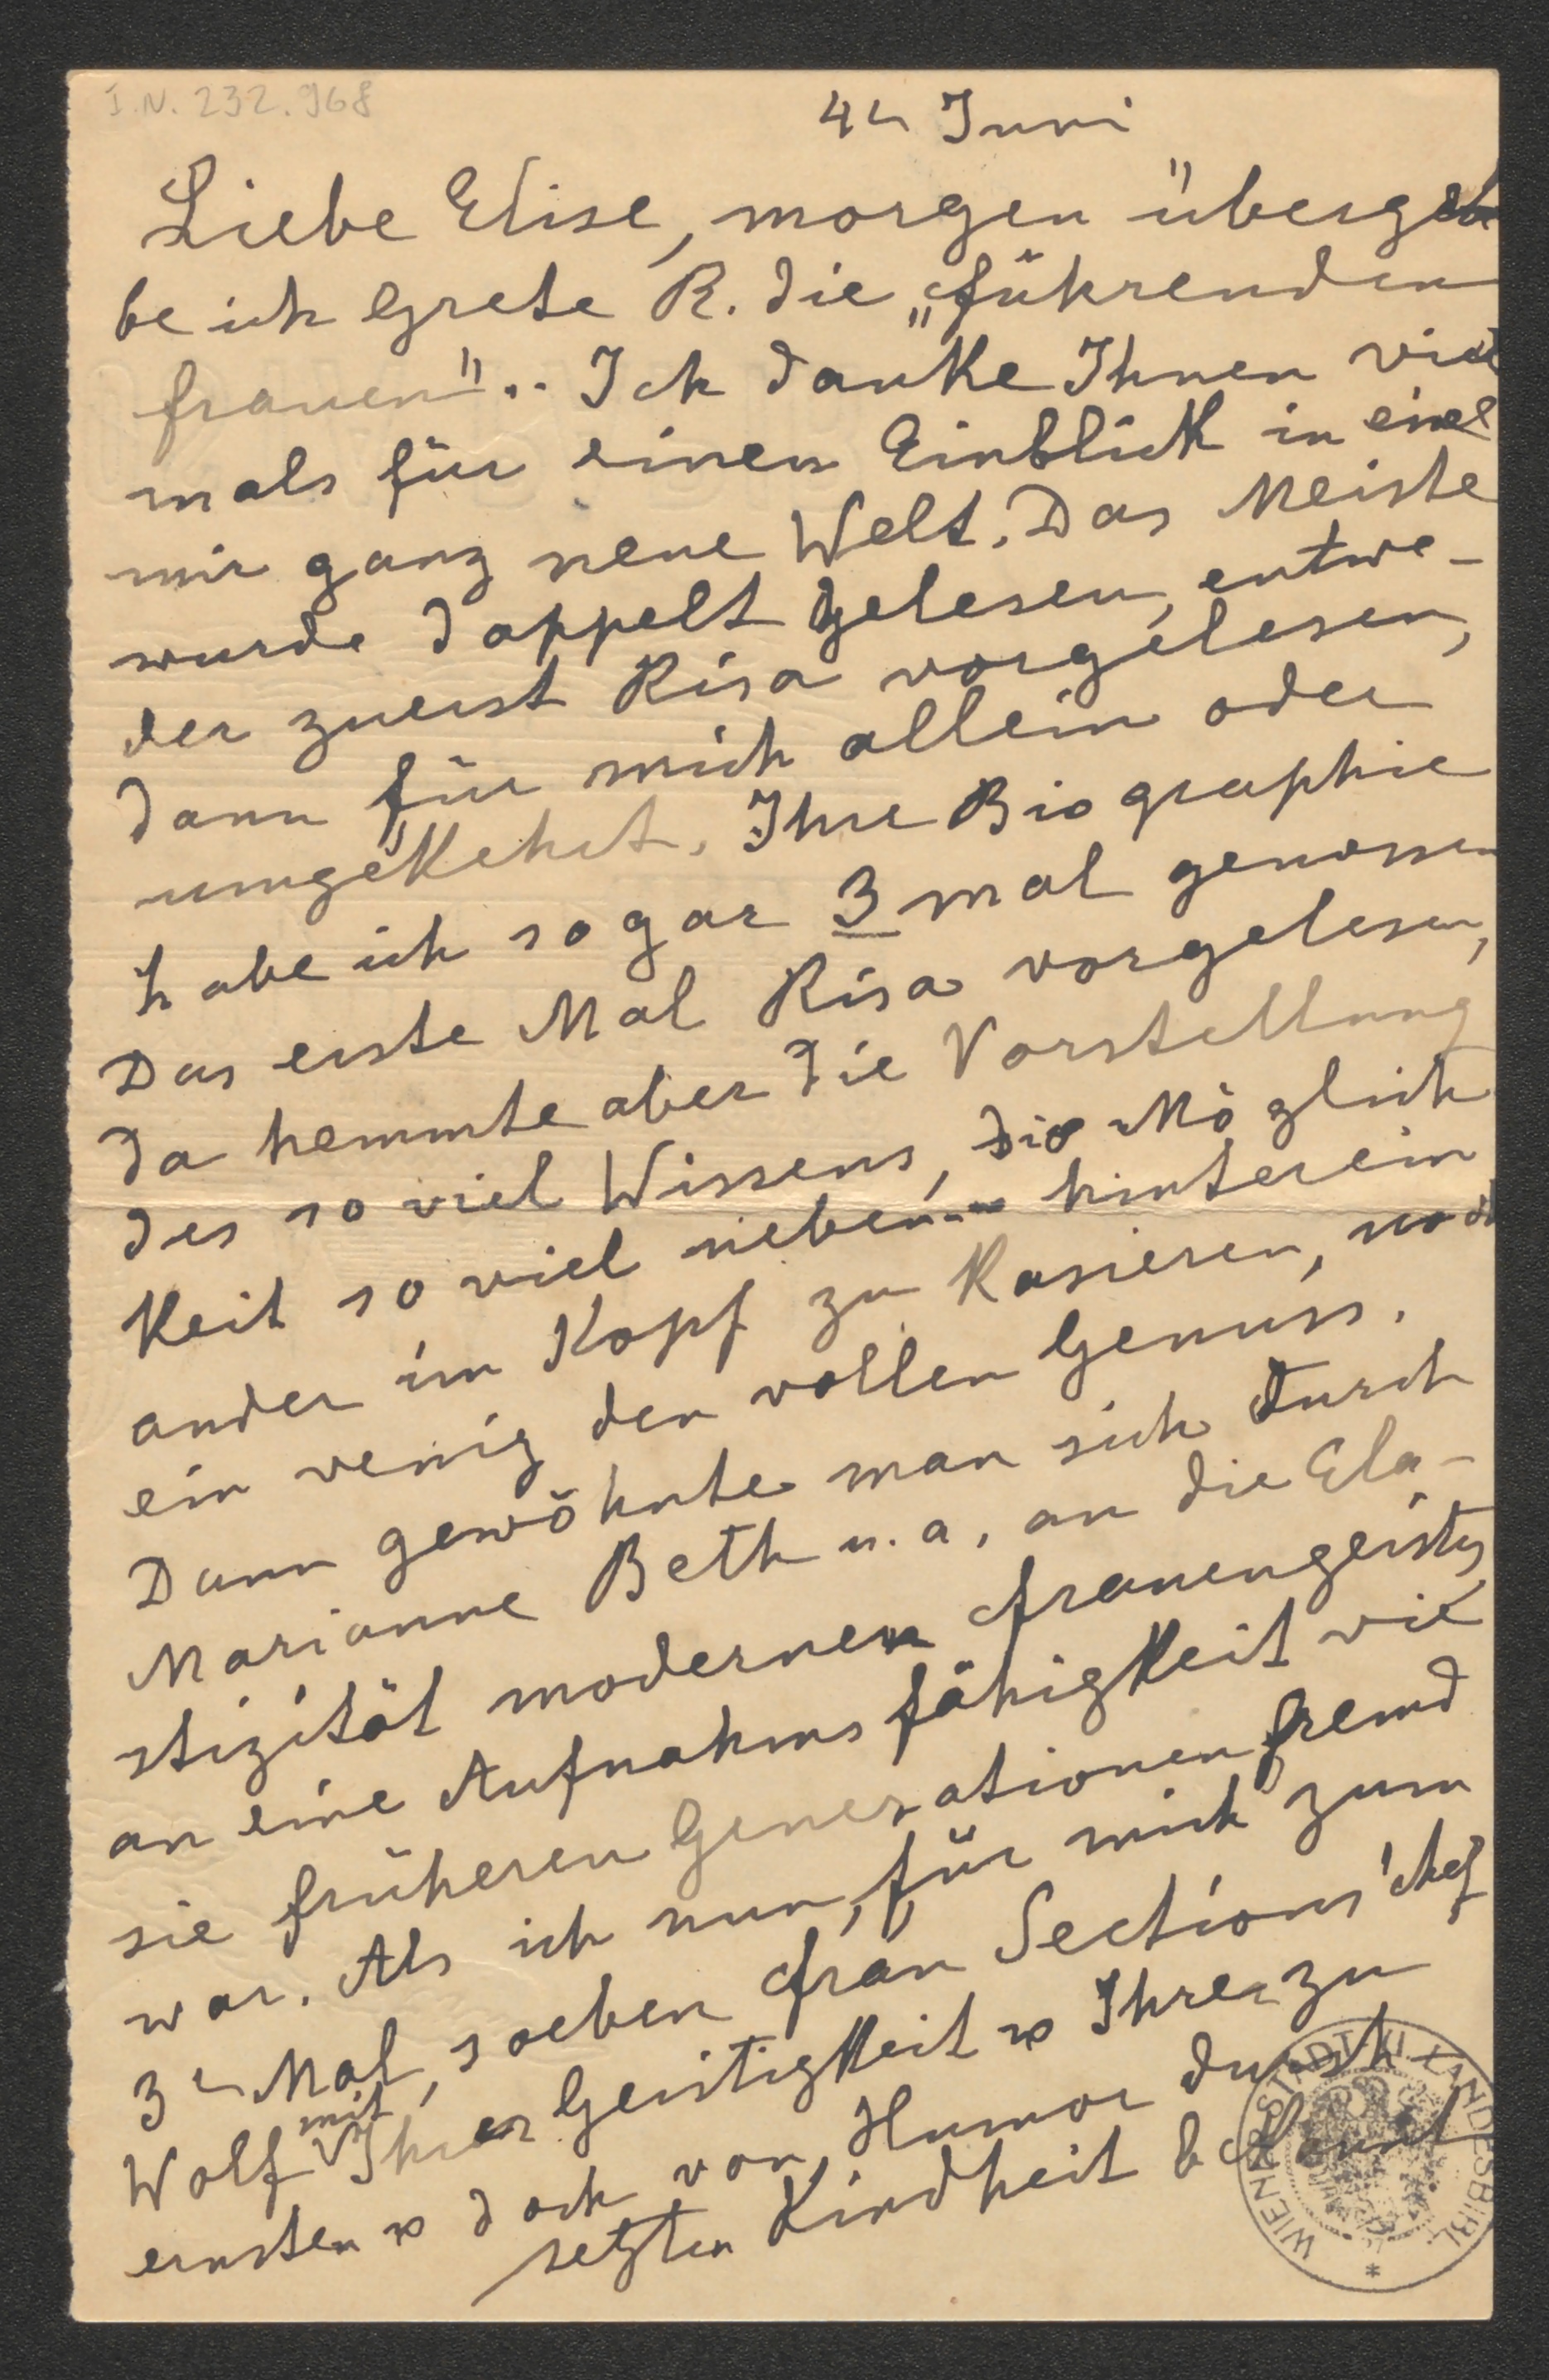 I.N. 232.968
4ten Juni
Liebe Elise, morgen überge
be ich Grete R. die „führenden
Frauen". Ich danke Ihnen viel
mals für einen Einblick in eine
mir ganz neue Welt. Das Meiste
wurde doppelt gelesen, entwe-
der zuerst Risa vorgelesen,
dann für mich allein oder
umgekehrt. Ihre Biographie
habe ich sogar 3 mal genossen
Das erste Mal Risa vorgelesen,
da hemmte aber die Vorstellung
des so viel Wissens, die Möglich
keit so viel neben hinterein
ander im Kopf zu kasieren, noch
ein wenig den vollen Genuss.
Dann gewöhnte man sich durch
Marianne Beth u. a. an die Ela-
stizität modernen Frauengeistes
an eine Aufnahmsfähigkeit wie
sie früheren Generationen fremd
war. Als ich nun, für mich zum
3ten Mal, soeben Frau Sectionschef
Wolf mit Ihrer Geistigkeit u Ihrer zu
ernsten u doch von Humor durch
setzten Kindheit bekannt
WIENER STADT- U. LANDESBIBL. *